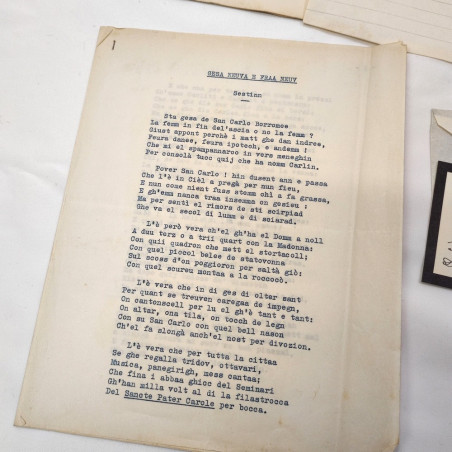 GESA NEUVA E FRAA NEUV
Sestinn
Sta gesa de San Carlo Borromee
La femm in fin del'ascia o no la femm ?
Giust appont perchè i matt ghe dan indree,
Feura danee, feura ipotech, e andemm !
Che mi el spampannaroo in vers meneghin
Per consolà tucc quij che ha nomm Carlin.
Pover San Carlo ! hin dusent ann e passa
Che l'è in Ciël a pregà per nun fieu,
E nun come nient fuss stomm chì a fa grassa,
E gh'emm nanca traa insemma on gesieu :
Ma per sentì el rimors de stì scirpiad
Ghe va el secol di lumm e di sciarad.
L'è però vera ch'el gh'ha el Domm a noll
A dau torz o a trii quart con la Madonna:
Con quii quadron che mett el stortacoll;
Con quel piccol belee de statovonna
Sul scoss d'on poggioeu per saltà giò;
Con quel scurou montaa a la roccocò.
L'è vera che in di ges di olter sant
Per quant se treuven caregaa de impegn,
On cantonscell per lu el gh'è tant e tant:
On altar, ona tila, on tocch de legn
Con su San Carlo con quel bell nason
Ch'el fa slongà anch'el nost per divozion.
L'è vera che per tutta la cittaa
Se ghe regalla tridov, ottavari,
Musica, panegirigh, mess cantaa;
Che fina i abbaa ghicc del Seminari
Gh'han milla volt al dì la filastrocca
Del Sancte Pater Carole per bocca.